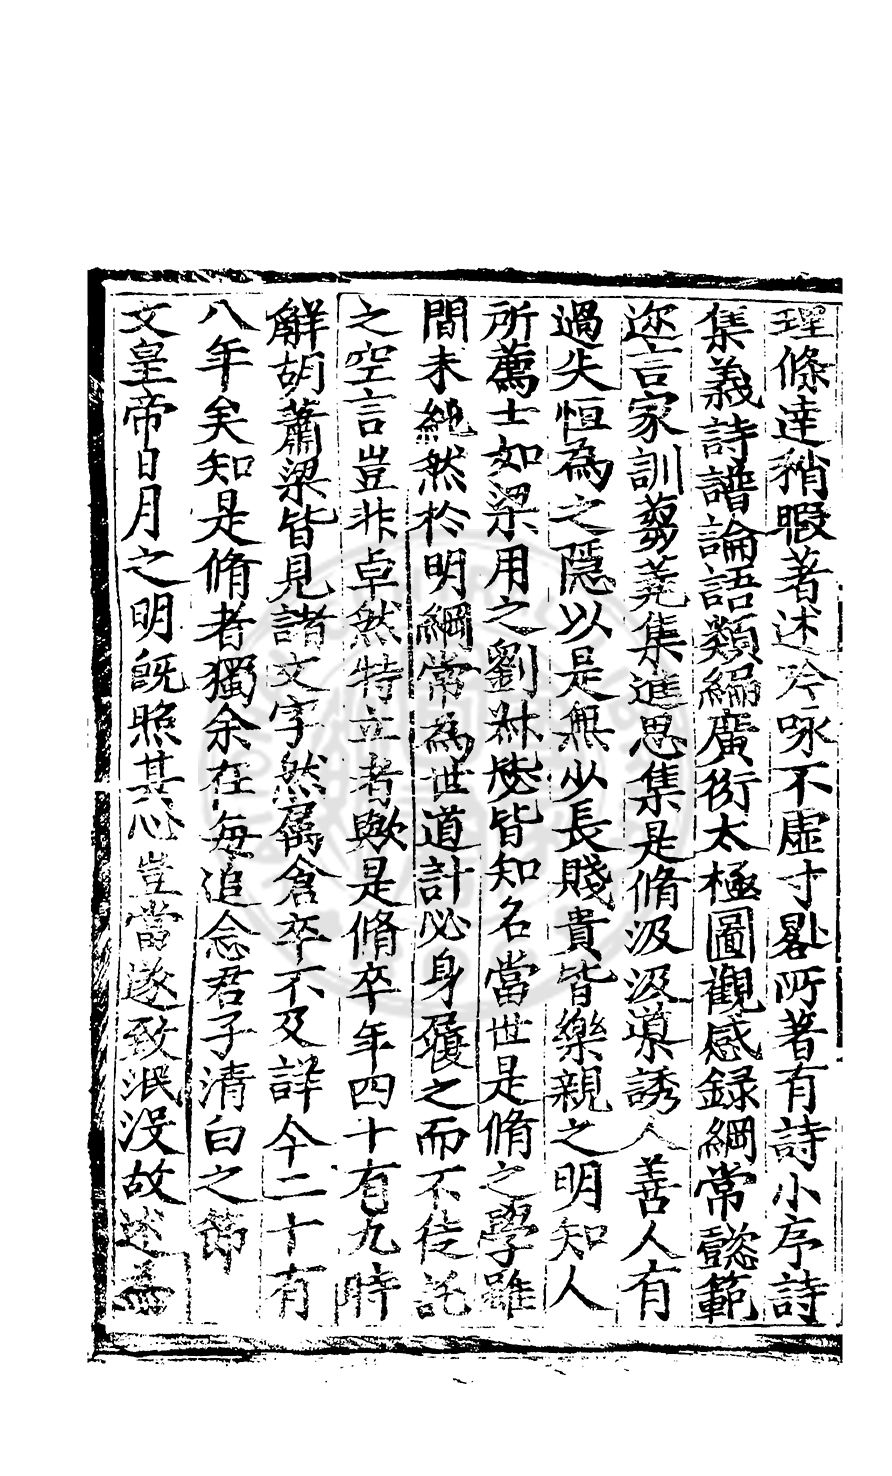 理條達稍暇著述吟咏不虛寸晷所著有詩小序詩
集義詩譜論語類編廣衍太極圖觀感録綱常懿範
迩言家訓蒭蕘集進思集是脩汲汲導誘人善人有
過失恒為之隱以是無少長賤貴皆樂親之明知人
所薦士如梁用之劉皆知名當世是脩之學雖
間未純然於明綱常為世道計必身履之而不徒託
之空言豈非卓然特立者歟是脩卒年四十有九時
解胡蕭梁皆見諸文字然属倉卒不及詳今二十有
八年矣知是脩者獨余在每追念君子清白之節
文皇帝日月之明既照其心豈當遂致泯没故述為